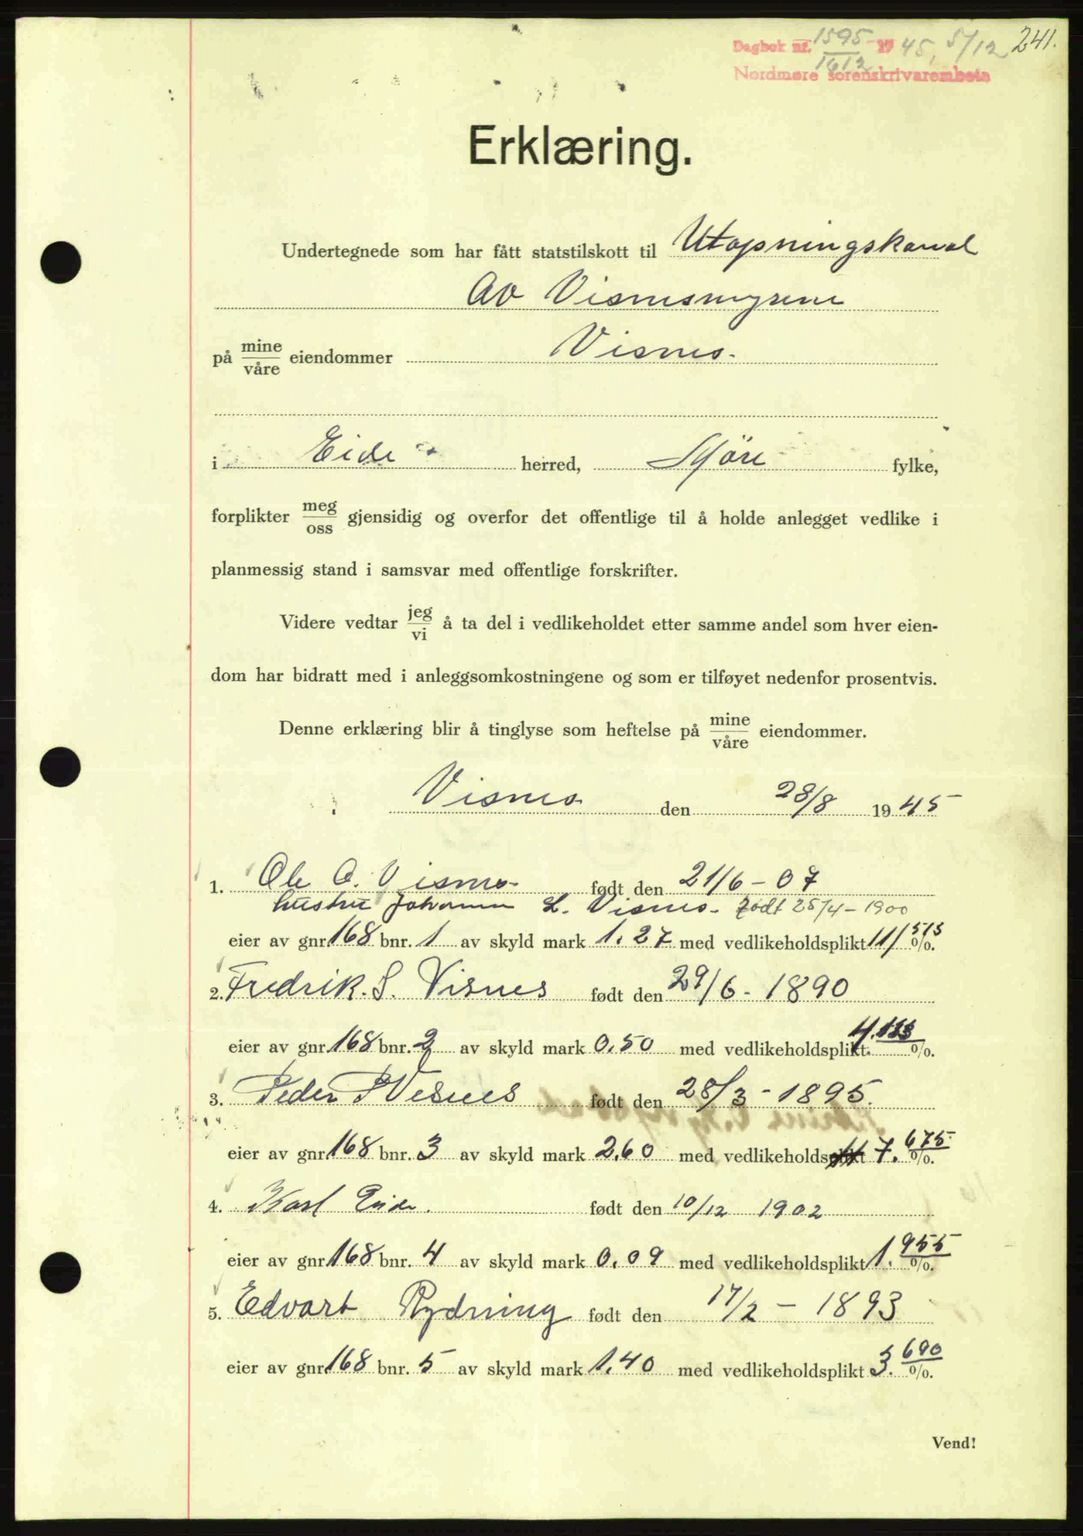 Dagbok nr. 1595 1945, 5/12 241.
1612
Nordmøre sorenskrivarembete
Erklæring.
Undertegnede som har fått statstilskott til Utapningskanal
Av Visnesmyrene
på mine/våre eiendommer Visnes.
i Eide herred, Møre fylke,
forplikter meg/oss gjensidig og overfor det offentlige til å holde anlegget vedlike i
planmessig stand i samsvar med offentlige forskrifter.
Videre vedtar jeg/vi å ta del i vedlikeholdet etter samme andel som hver eien-
dom har bidratt med i anleggsomkostningene og som er tilføyet nedenfor prosentvis.
Denne erklæring blir å tinglyse som heftelse på mine/våre eiendommer.
Visnes den 28/8 1945
1. Ole O. Visnes født den 21/6 - 07
hustru Johanna L. Visnes. født 25/4 - 1900
eier av gnr. 168 bnr. 1 av skyld mark 1.27 med vedlikeholdsplikt 11,575 %.
2. Fredrik. S. Visnes født den 29/6 - 1890
eier av gnr. 168 bnr. 2 av skyld mark 0.50 med vedlikeholdsplikt 4. %.
3. Peder P Visnes født den 28/3 - 1895.
eier av gnr. 168 bnr. 3 av skyld mark 2.60 med vedlikeholdsplikt 7.675 %.
4. Karl Eide. født den 10/12 1902
eier av gnr. 168 bnr. 4 av skyld mark 0.09 med vedlikeholdsplikt 1.955 %.
5. Edvart Rydning født den 17/2 - 1893
eier av gnr. 168 bnr. 5 av skyld mark 1.40 med vedlikeholdsplikt 3.690 %.
Vend!